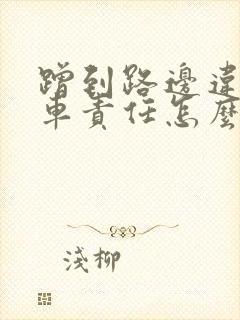 蹭到路邊違
車責任怎麼
淺柳